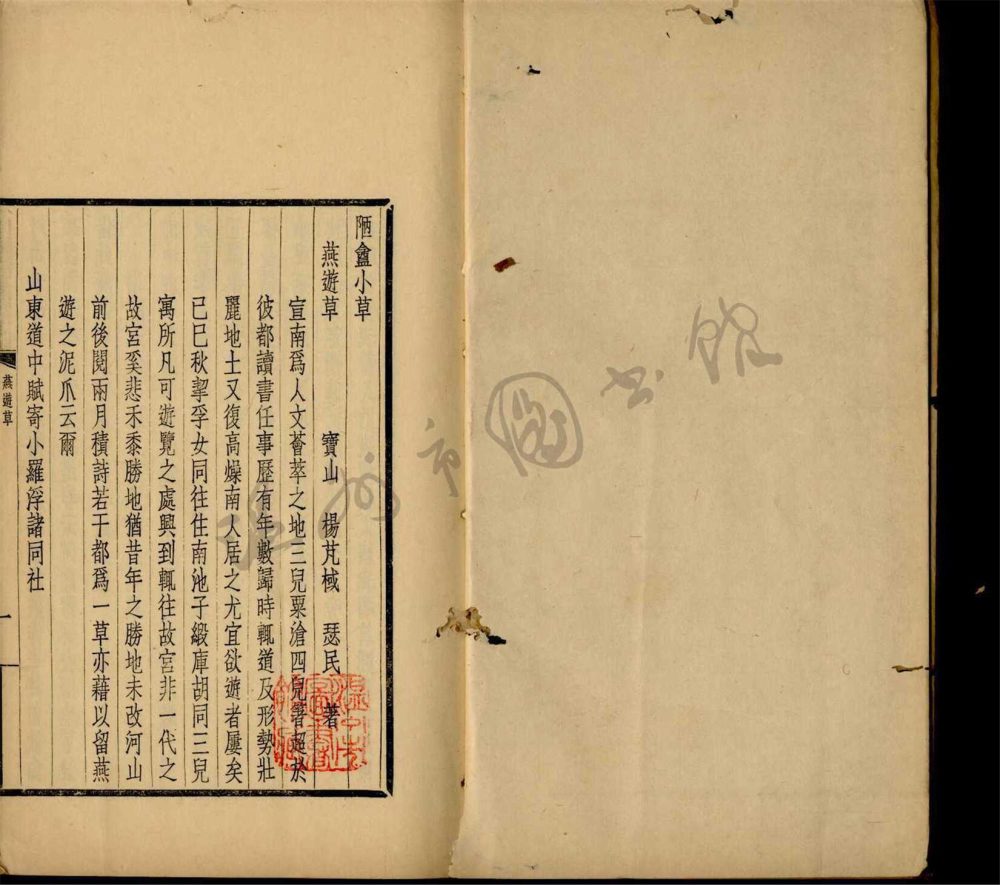 陋盦小草
燕遊草　寶山　楊芃棫　瑟民　著
宣南爲人文薈萃之地三兒粟滄四兒箸超於
彼都讀書任事歷有年數歸時輒道及形勢壯
麗地土又復高燥南人居之尤宜欲遊者屢矣
己巳秋挈孚女同往住南池子緞庫胡同三兒
寓所凡可遊覽之處興到輒往故宮非一代之
故宮奚悲禾黍勝地猶昔年之勝地未改河山
前後閱兩月積詩若干都爲一草亦藉以留燕
遊之泥爪云爾
山東道中賦寄小羅浮諸同社
燕遊草
一
溫州市圖書館